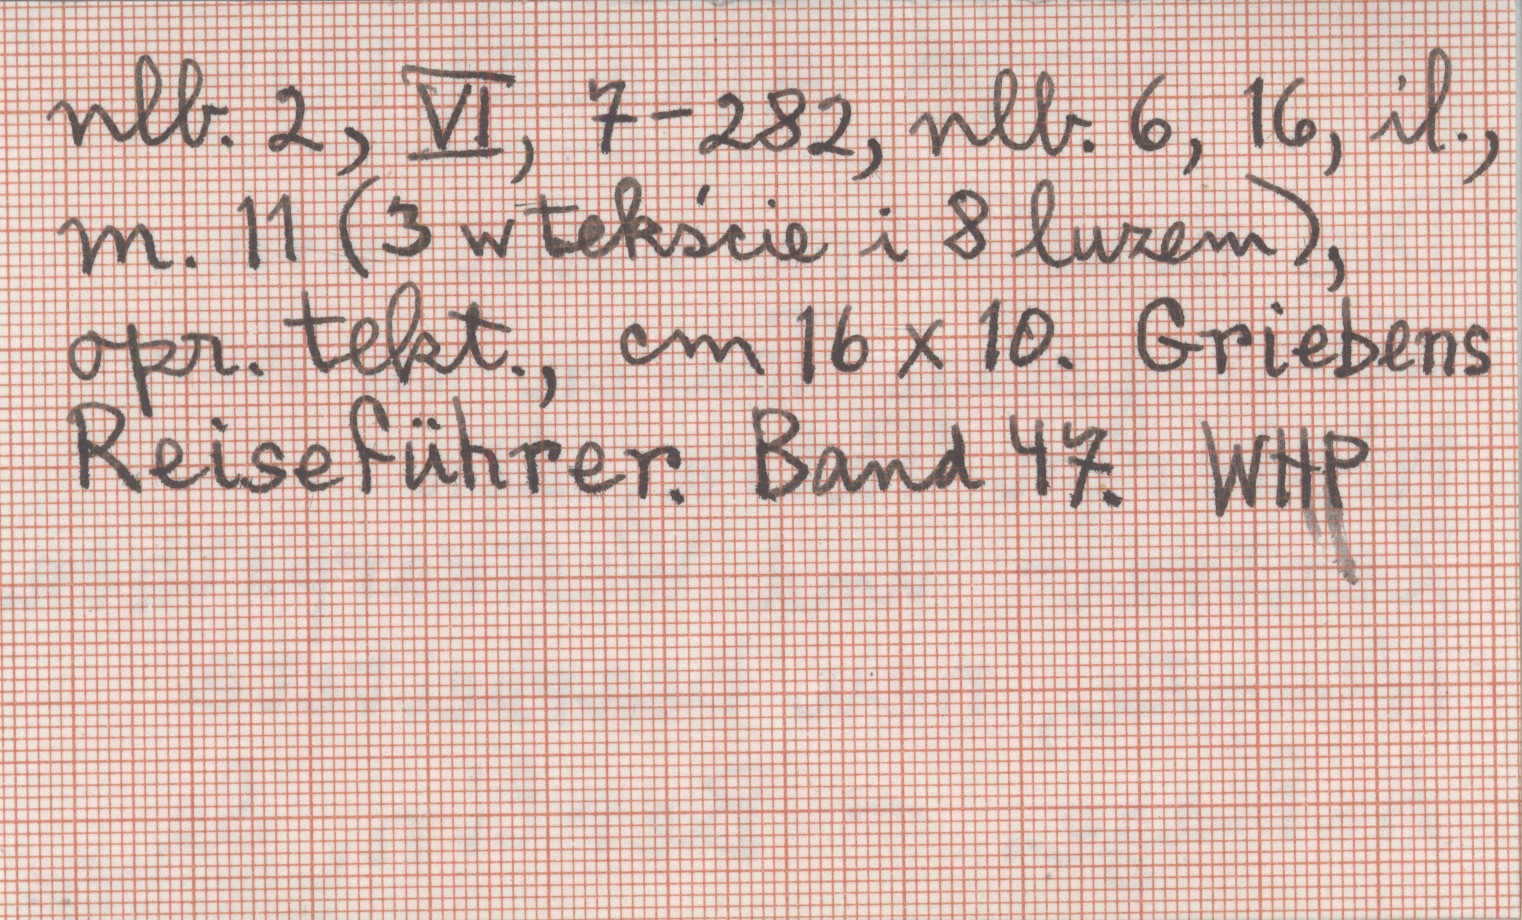 nlb. 2, VI, 7-282, nlb. 6, 16, il.,
m. 11 (3 w tekście i 8 luzem),
opr. tekt., cm 16 x 10. Griebens
Reiseführer. Band 47. WHP